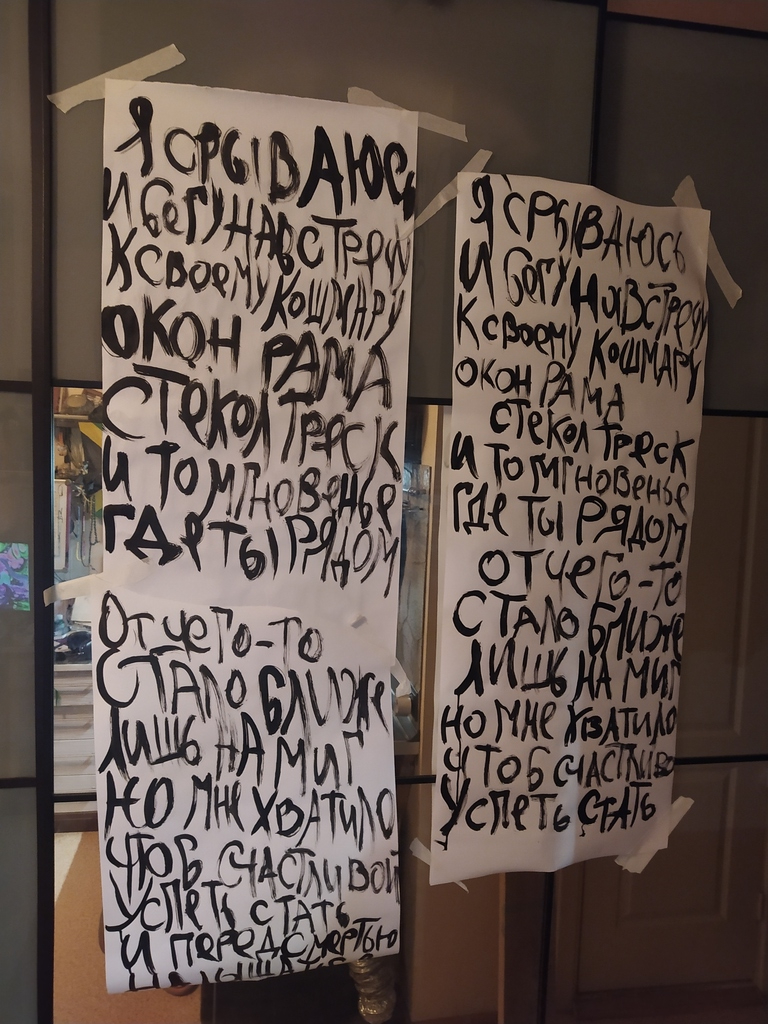 Я СРЫВАЮСЬ
И БЕГУ НАВСТРЕЧУ
К СВОЕМУ КОШМАРУ
ОКОН РАМА
СТЕКОЛ ТРЕСК
И ТО МГНОВЕНЬЕ
ГДЕ ТЫ РЯДОМ
ОТЧЕГО-ТО
СТАЛО БЛИЖЕ
ЛИШЬ НА МИГ
НО МНЕ ХВАТИЛО
ЧТОБ СЧАСТЛИВОЙ
УСПЕТЬ СТАТЬ
И ПЕРЕД СМЕРТЬЮ
Я СРЫВАЮСЬ
И БЕГУ НАВСТРЕЧУ
К СВОЕМУ КОШМАРУ
ОКОН РАМА
СТЕКОЛ ТРЕСК
И ТО МГНОВЕНЬЕ
ГДЕ ТЫ РЯДОМ
ОТЧЕГО-ТО
СТАЛО БЛИЖЕ
ЛИШЬ НА МИГ
НО МНЕ ХВАТИЛО
ЧТОБ СЧАСТЛИВО
УСПЕТЬ СТАТЬ